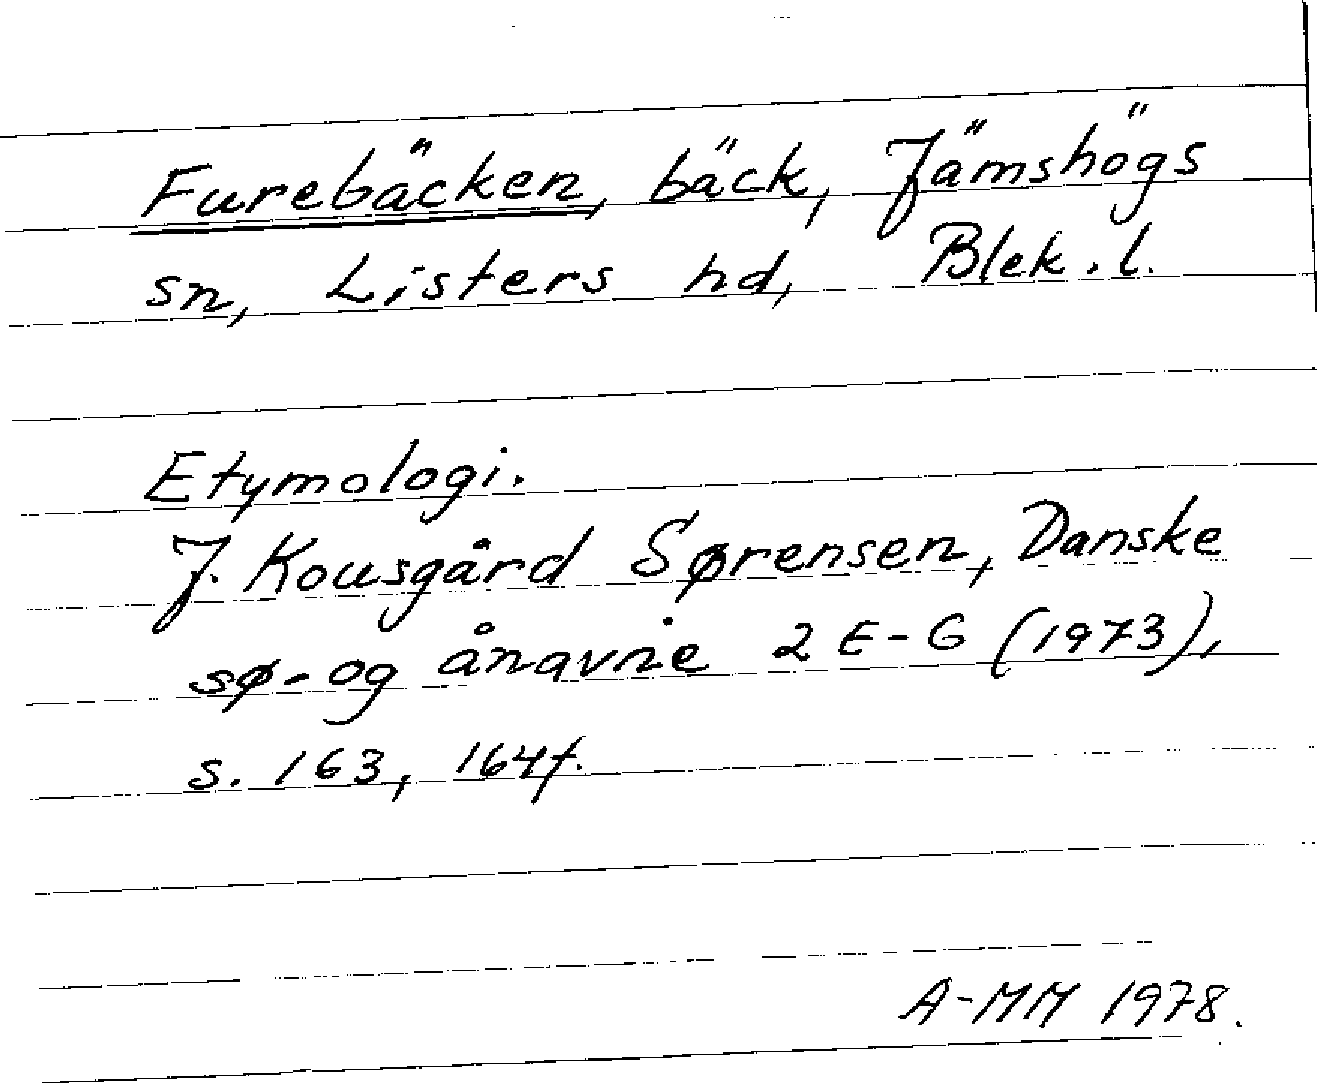 Furebäcken, bäck, Jämshögs
sn, Listers hd, Blek. l.
Etymologi.
J. Kousgård Sørensen, Danske
sø- og ånavne 2 E-G (1973),
s. 163, 164f.
A-MM 1978.